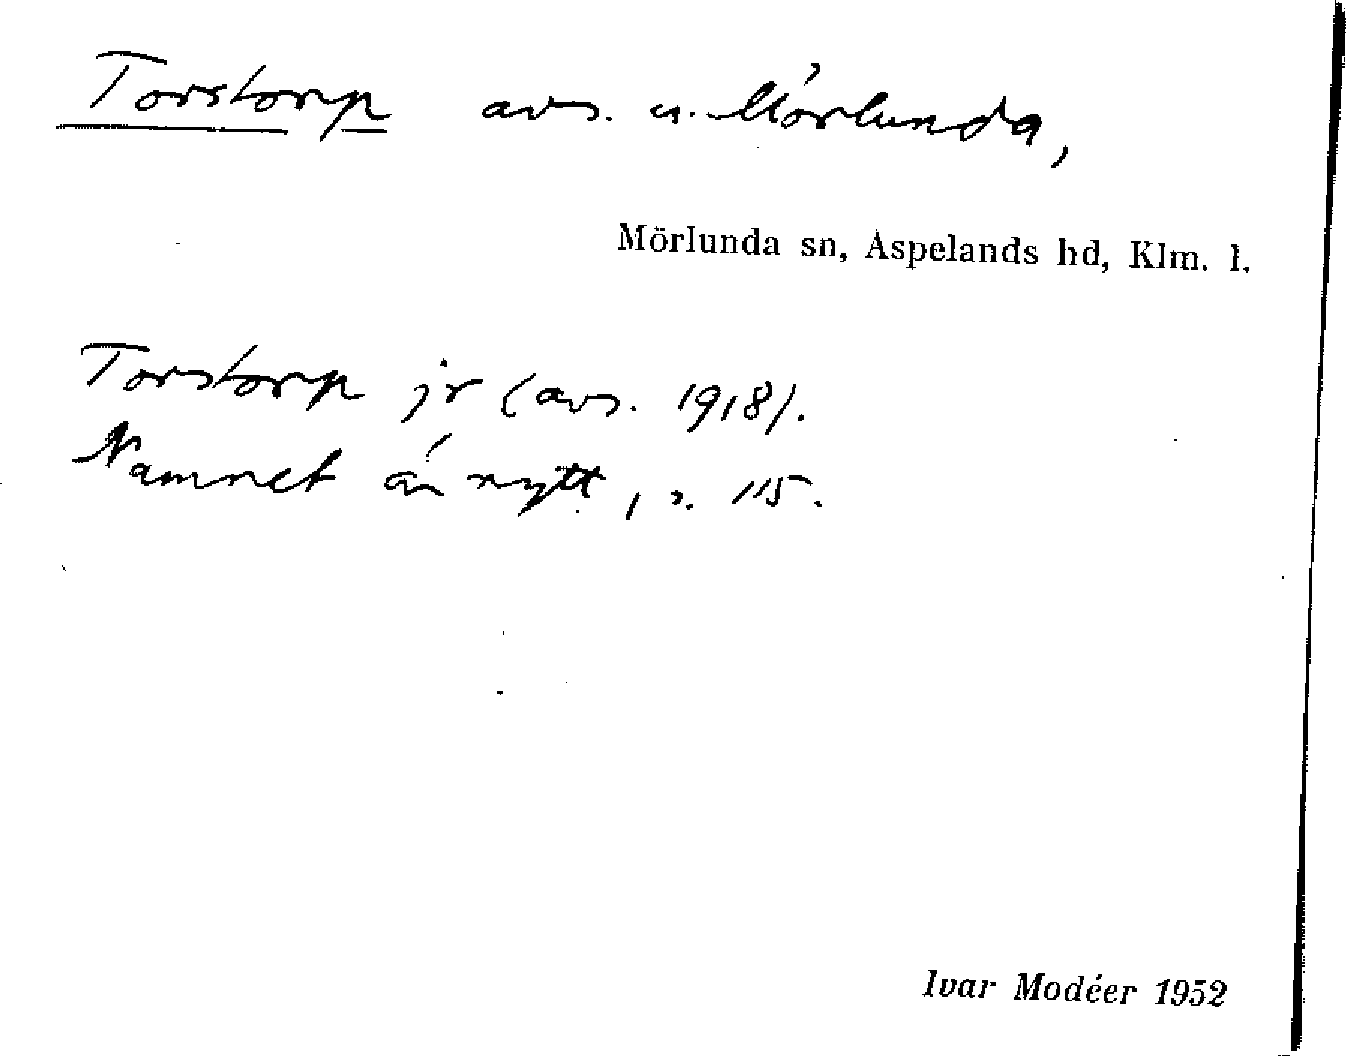 Torstorp avs. u. Mörlunda,
Mörlunda sn, Aspelands hd, Klm. l.
Torstorp jr (avs. 1918).
Namnet är nytt, s. 115.
Ivar Modéer 1952